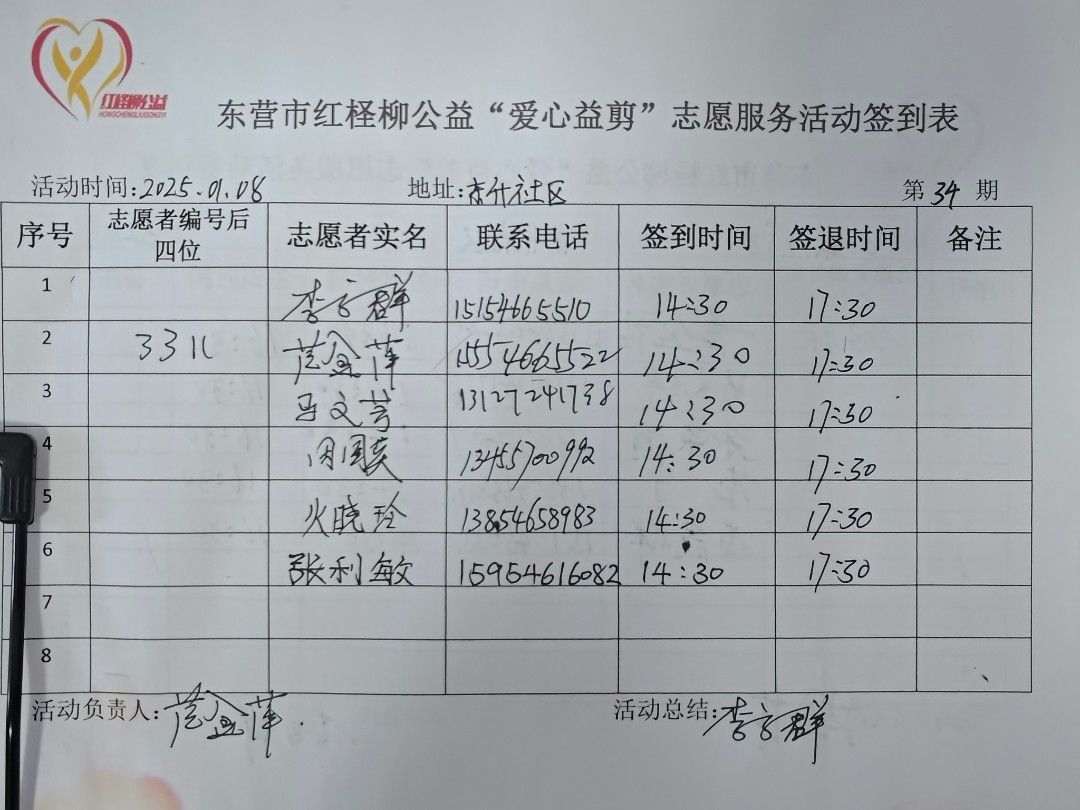 红柽柳公益
HONGCHENGLIUGONGYI
东营市红柽柳公益“爱心益剪”志愿服务活动签到表
活动时间:2025.01.08 地址:东升社区 第34期
序号 志愿者编号后四位 志愿者实名 联系电话 签到时间 签退时间 备注
1 李方群 15154665510 14:30 17:30
2 3311 范金萍 15554665522 14:30 17:30
3 马文芳 13127241738 14:30 17:30
4 闵国英 13455700992 14:30 17:30
5 火晓玲 13854658983 14:30 17:30
6 张利敏 15954616082 14:30 17:30
7
8
活动负责人:范金萍 活动总结:李方群